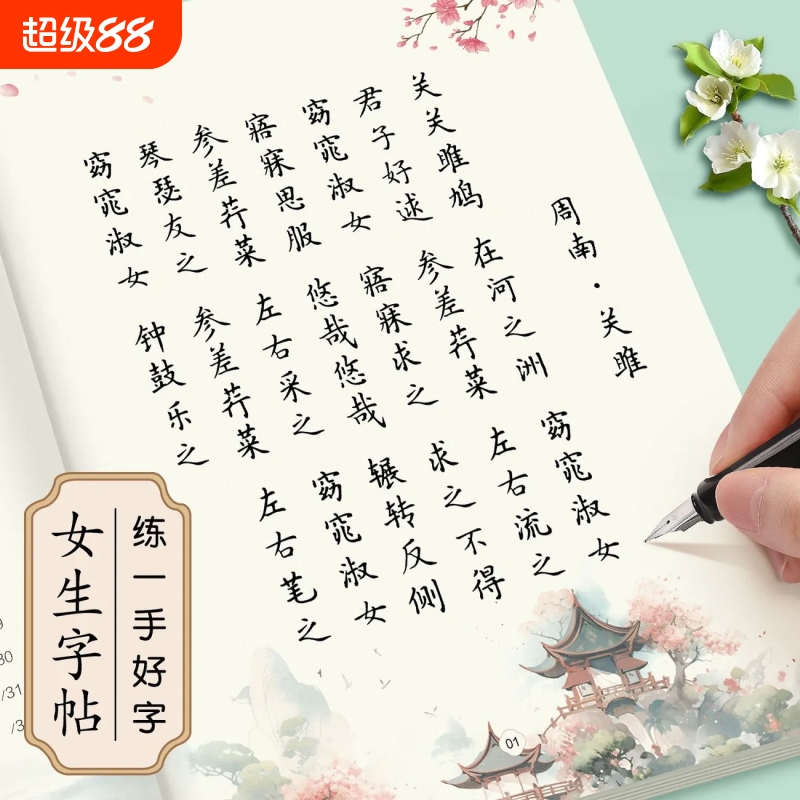 超级88
周南·关雎
关关雎鸠 在河之洲 窈窕淑女
君子好逑 参差荇菜 左右流之
窈窕淑女 寤寐求之 求之不得
寤寐思服 悠哉悠哉 辗转反侧
参差荇菜 左右采之 窈窕淑女
琴瑟友之 参差荇菜 左右芼之
窈窕淑女 钟鼓乐之
练一手好字
女生字帖
01